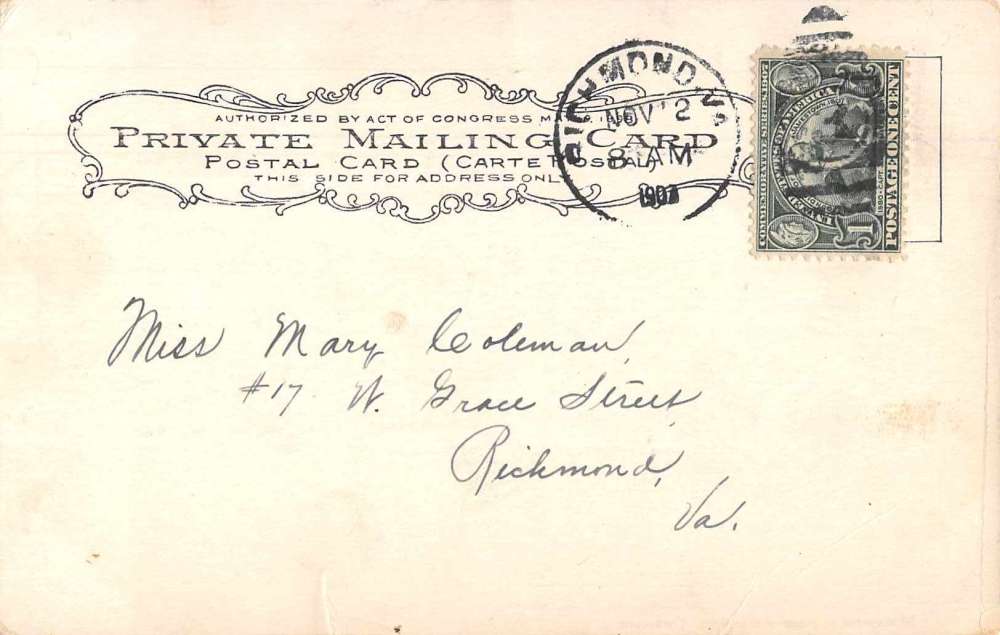 AUTHORIZED BY ACT OF CONGRESS MAY 19, 1898
PRIVATE MAILING CARD
POSTAL CARD (CARTE POSTALE)
THIS SIDE FOR ADDRESS ONLY
RICHMOND, VA.
NOV 2
8 - AM
1907
COMMEMORATIVE SERIES 1907
OF AMERICA
POSTAGE ONE CENT
1
1
Miss Mary Coleman,
#17 W. Grace Street
Richmond,
Va.